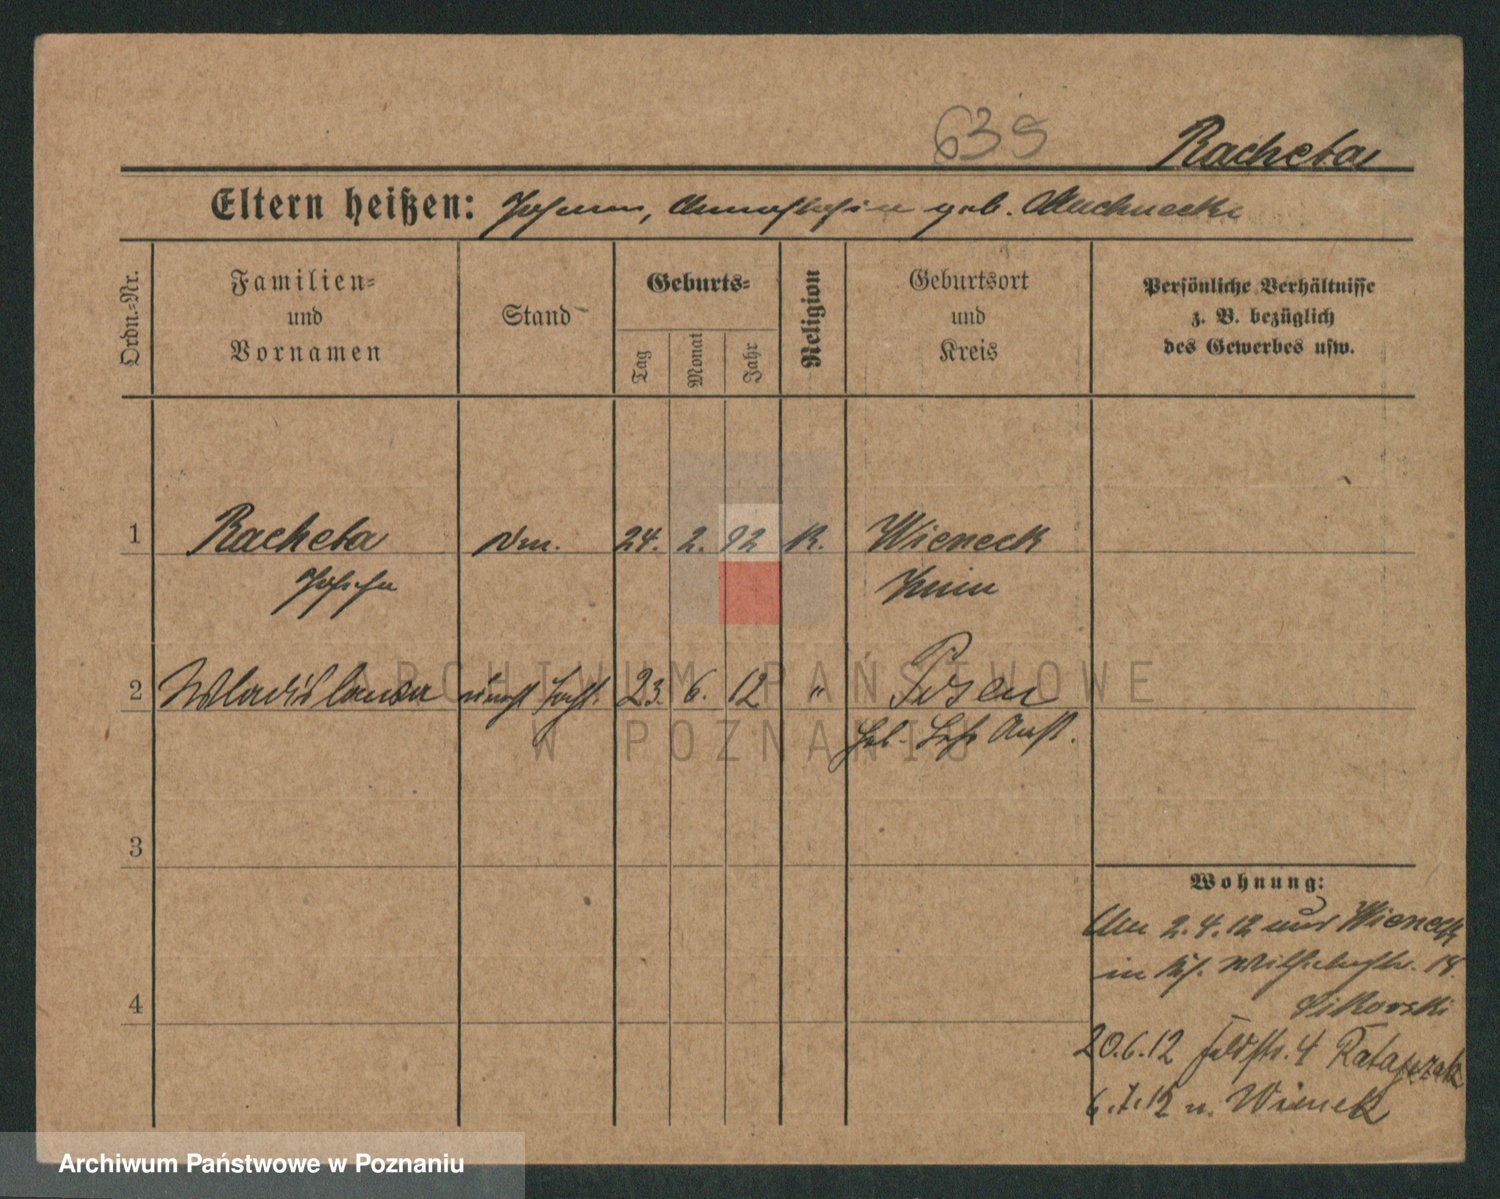 639
Racheba
Eltern heißen: geb.
Ordn.-Nr.
Familien- und Vornamen
Stand
Geburts-
Tag
Monat
Jahr
Religion
Geburtsort und Kreis
Persönliche Verhältnisse z. B. bezüglich des Gewerbes usw.
1 Racheba 24. 2. 92 K. Wieneck
Znin
2 Wladislawa 23. 6. 12 " Posen
Anst.
3
Wohnung:
2.4.12 aus Wieneck
in 18.
4
Sikorski
20.6.12 Feldstr. 4 Ratajczak
6.7.12 n. Wienek
ARCHIWUM PAŃSTWOWE
W POZNANIU
Archiwum Państwowe w Poznaniu